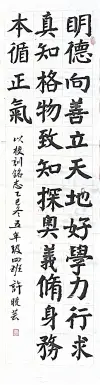 明德向善立天地好學力行求
真知格物致知探奧義脩身務
本循正氣
以校訓銘志乙巳冬五年級四班許晙芸